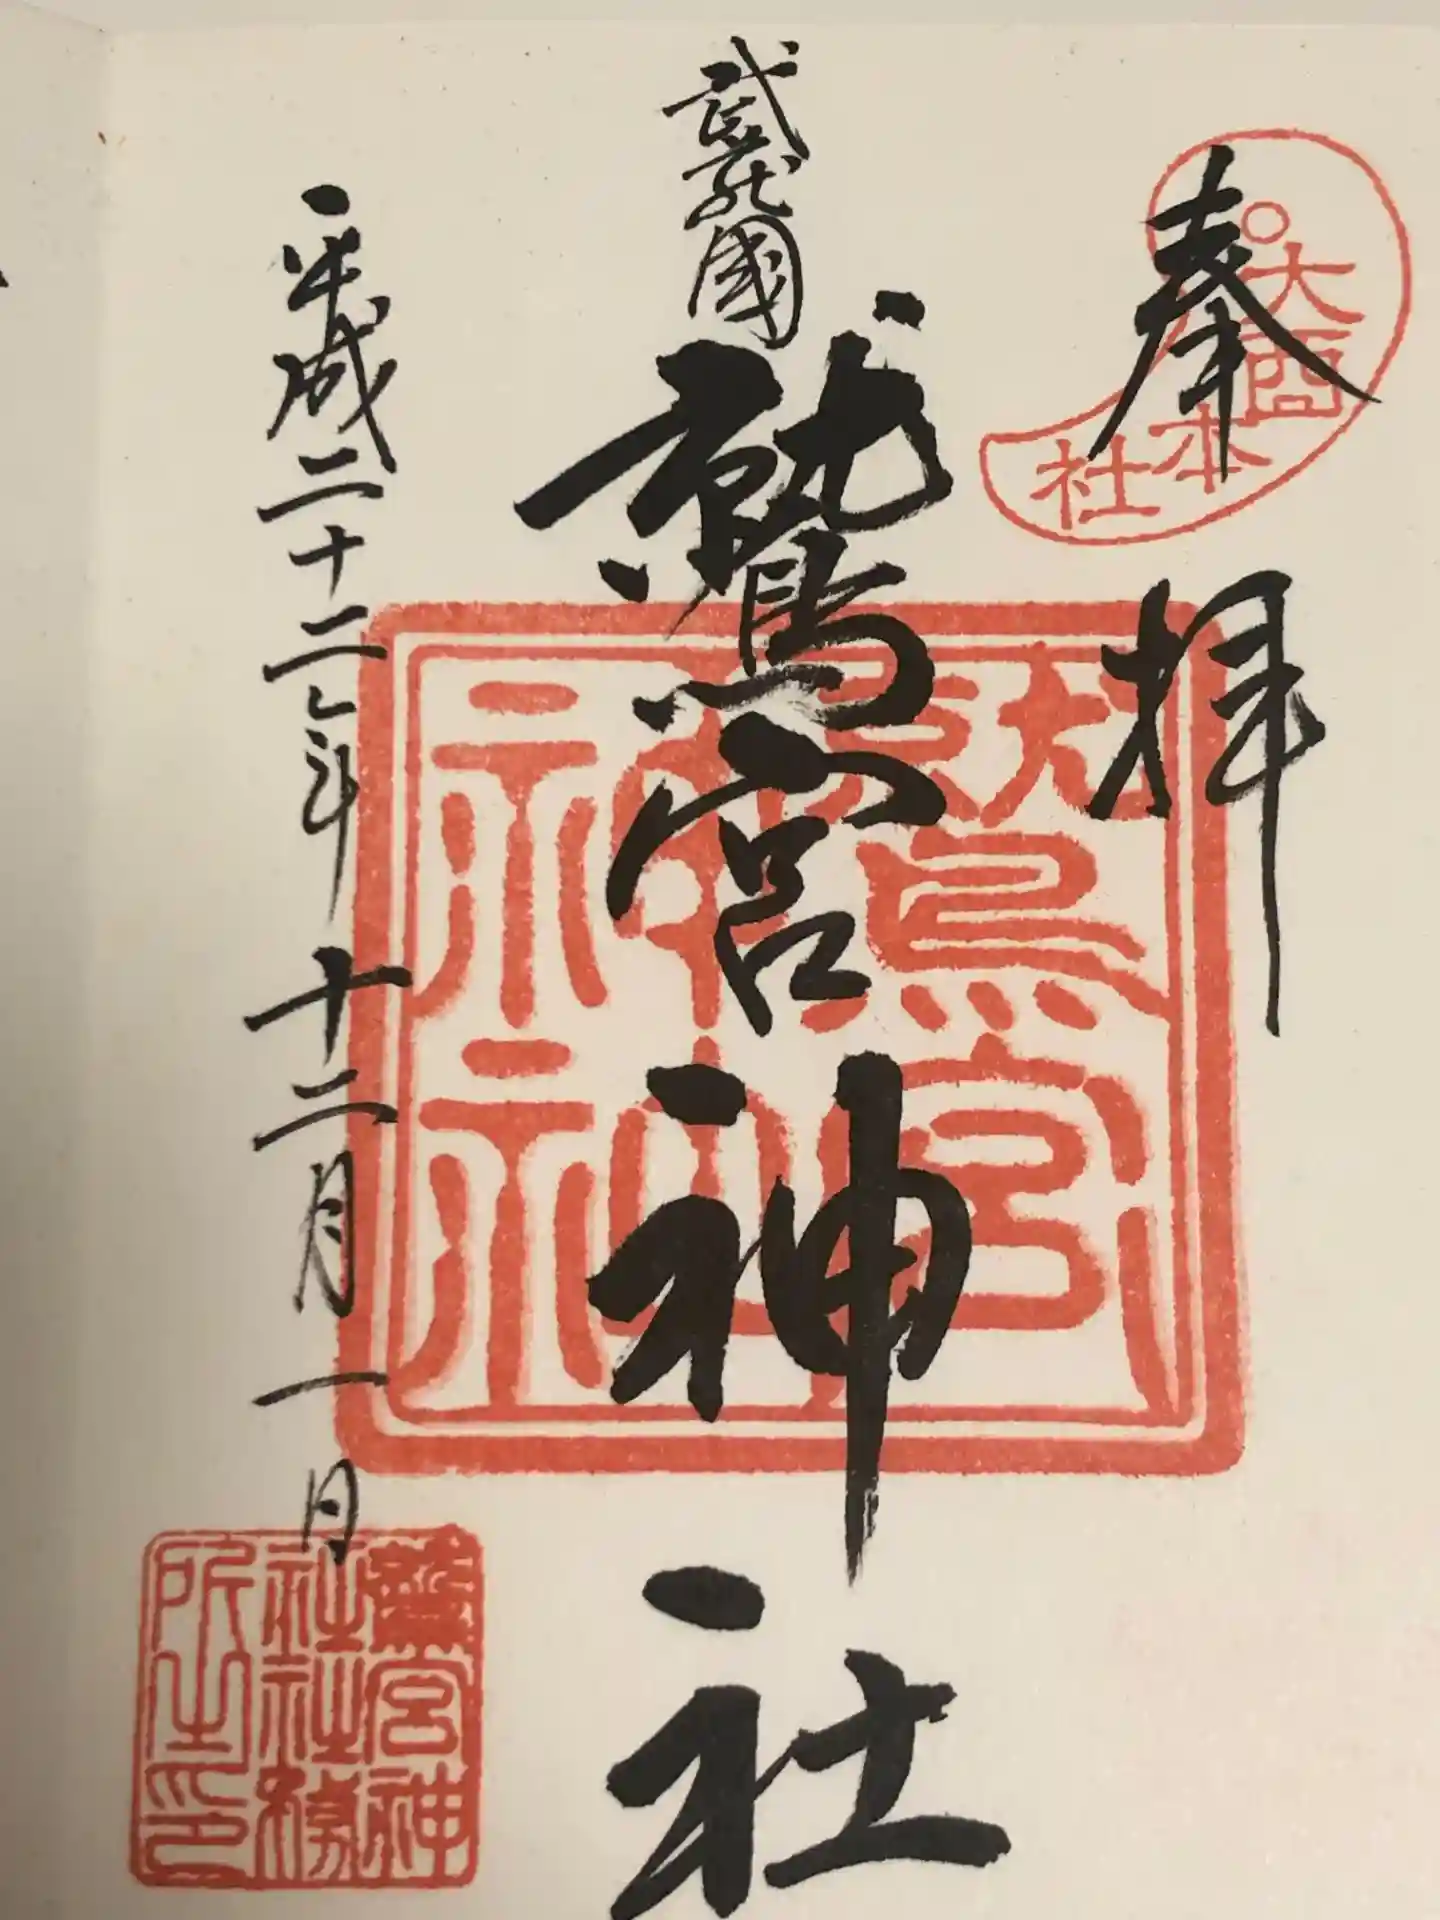 奉拝
大酉本社
武蔵國
鷲宮神社
鷲宮神社
平成二十二年十二月一日
鷲宮神社社務所之印